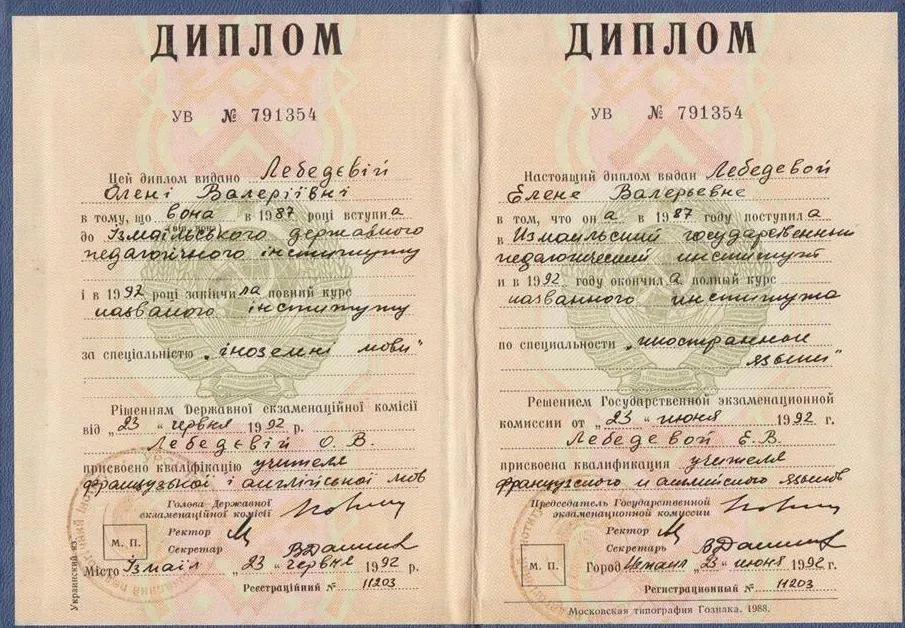 ДИПЛОМ
УВ № 791354
Цей диплом видано Лебедєвій
Олені Валеріївні
в тому, що вона в 1987 році вступила
до Ізмаїльського державного
педагогічного інституту
і в 1992 році закінчила повний курс
названого інституту
за спеціальністю „іноземні мови"
Рішенням Державної екзаменаційної комісії
від „23 " червня 1992 р.
Лебедєвій О. В.
присвоєно кваліфікацію учителя
французької і англійської мов
Голова Державної
екзаменаційної комісії
Ректор
М. П.
Секретар
Місто Ізмаїл „ 23 " червня 1992 р.
Реєстраційний № 11203
Украинский яз.
ДИПЛОМ
УВ № 791354
Настоящий диплом выдан Лебедевой
Елене Валерьевне
в том, что она в 1987 году поступила
в Измаильский государственный
педагогический институт
и в 1992 году окончила полный курс
названного института
по специальности „иностранные
языки"
Решением Государственной экзаменационной
комиссии от „23 " июня 1992 г.
Лебедевой Е. В.
присвоена квалификация учителя
французского и английского языков
Председатель Государственной
экзаменационной комиссии
Ректор
М. П.
Секретарь
Город Измаил „23 " июня 1992 г.
Регистрационный № 11203
Московская типография Гознака. 1988.